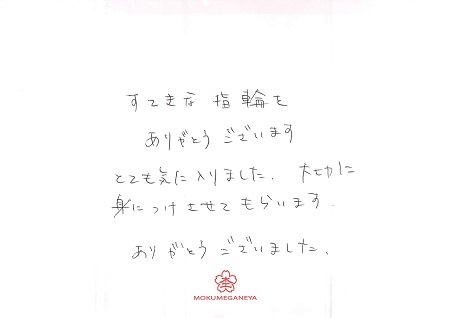 すてきな 指輪を
ありがとう ございます
とても気に入りました. 大切に
身につけさせてもらいます.
ありがとうございました.
杢
MOKUMEGANEYA